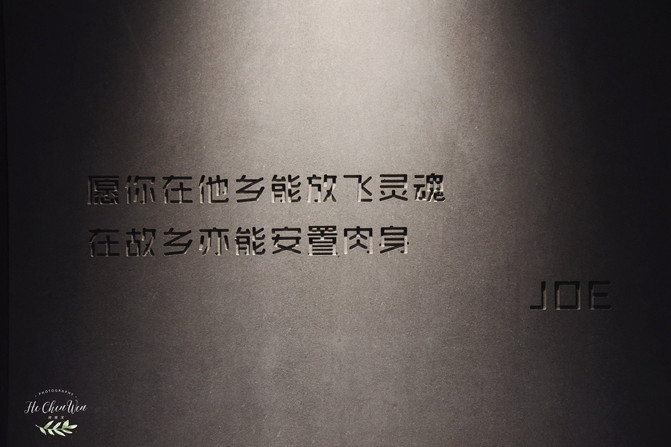 愿你在他乡能放飞灵魂
在故乡亦能安置肉身
JOE
PHOTOGRAPHY
He ChenWen